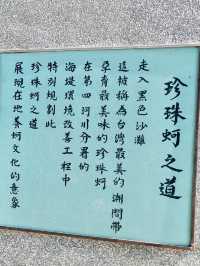 珍珠蚵之道
走入黑色沙灘
這被稱為台灣最美的潮間帶
孕育最美味的珍珠蚵
在第四河川分署的
海堤環境改善工程中
特別規劃此
珍珠蚵之道
展現在地養蚵文化的意象